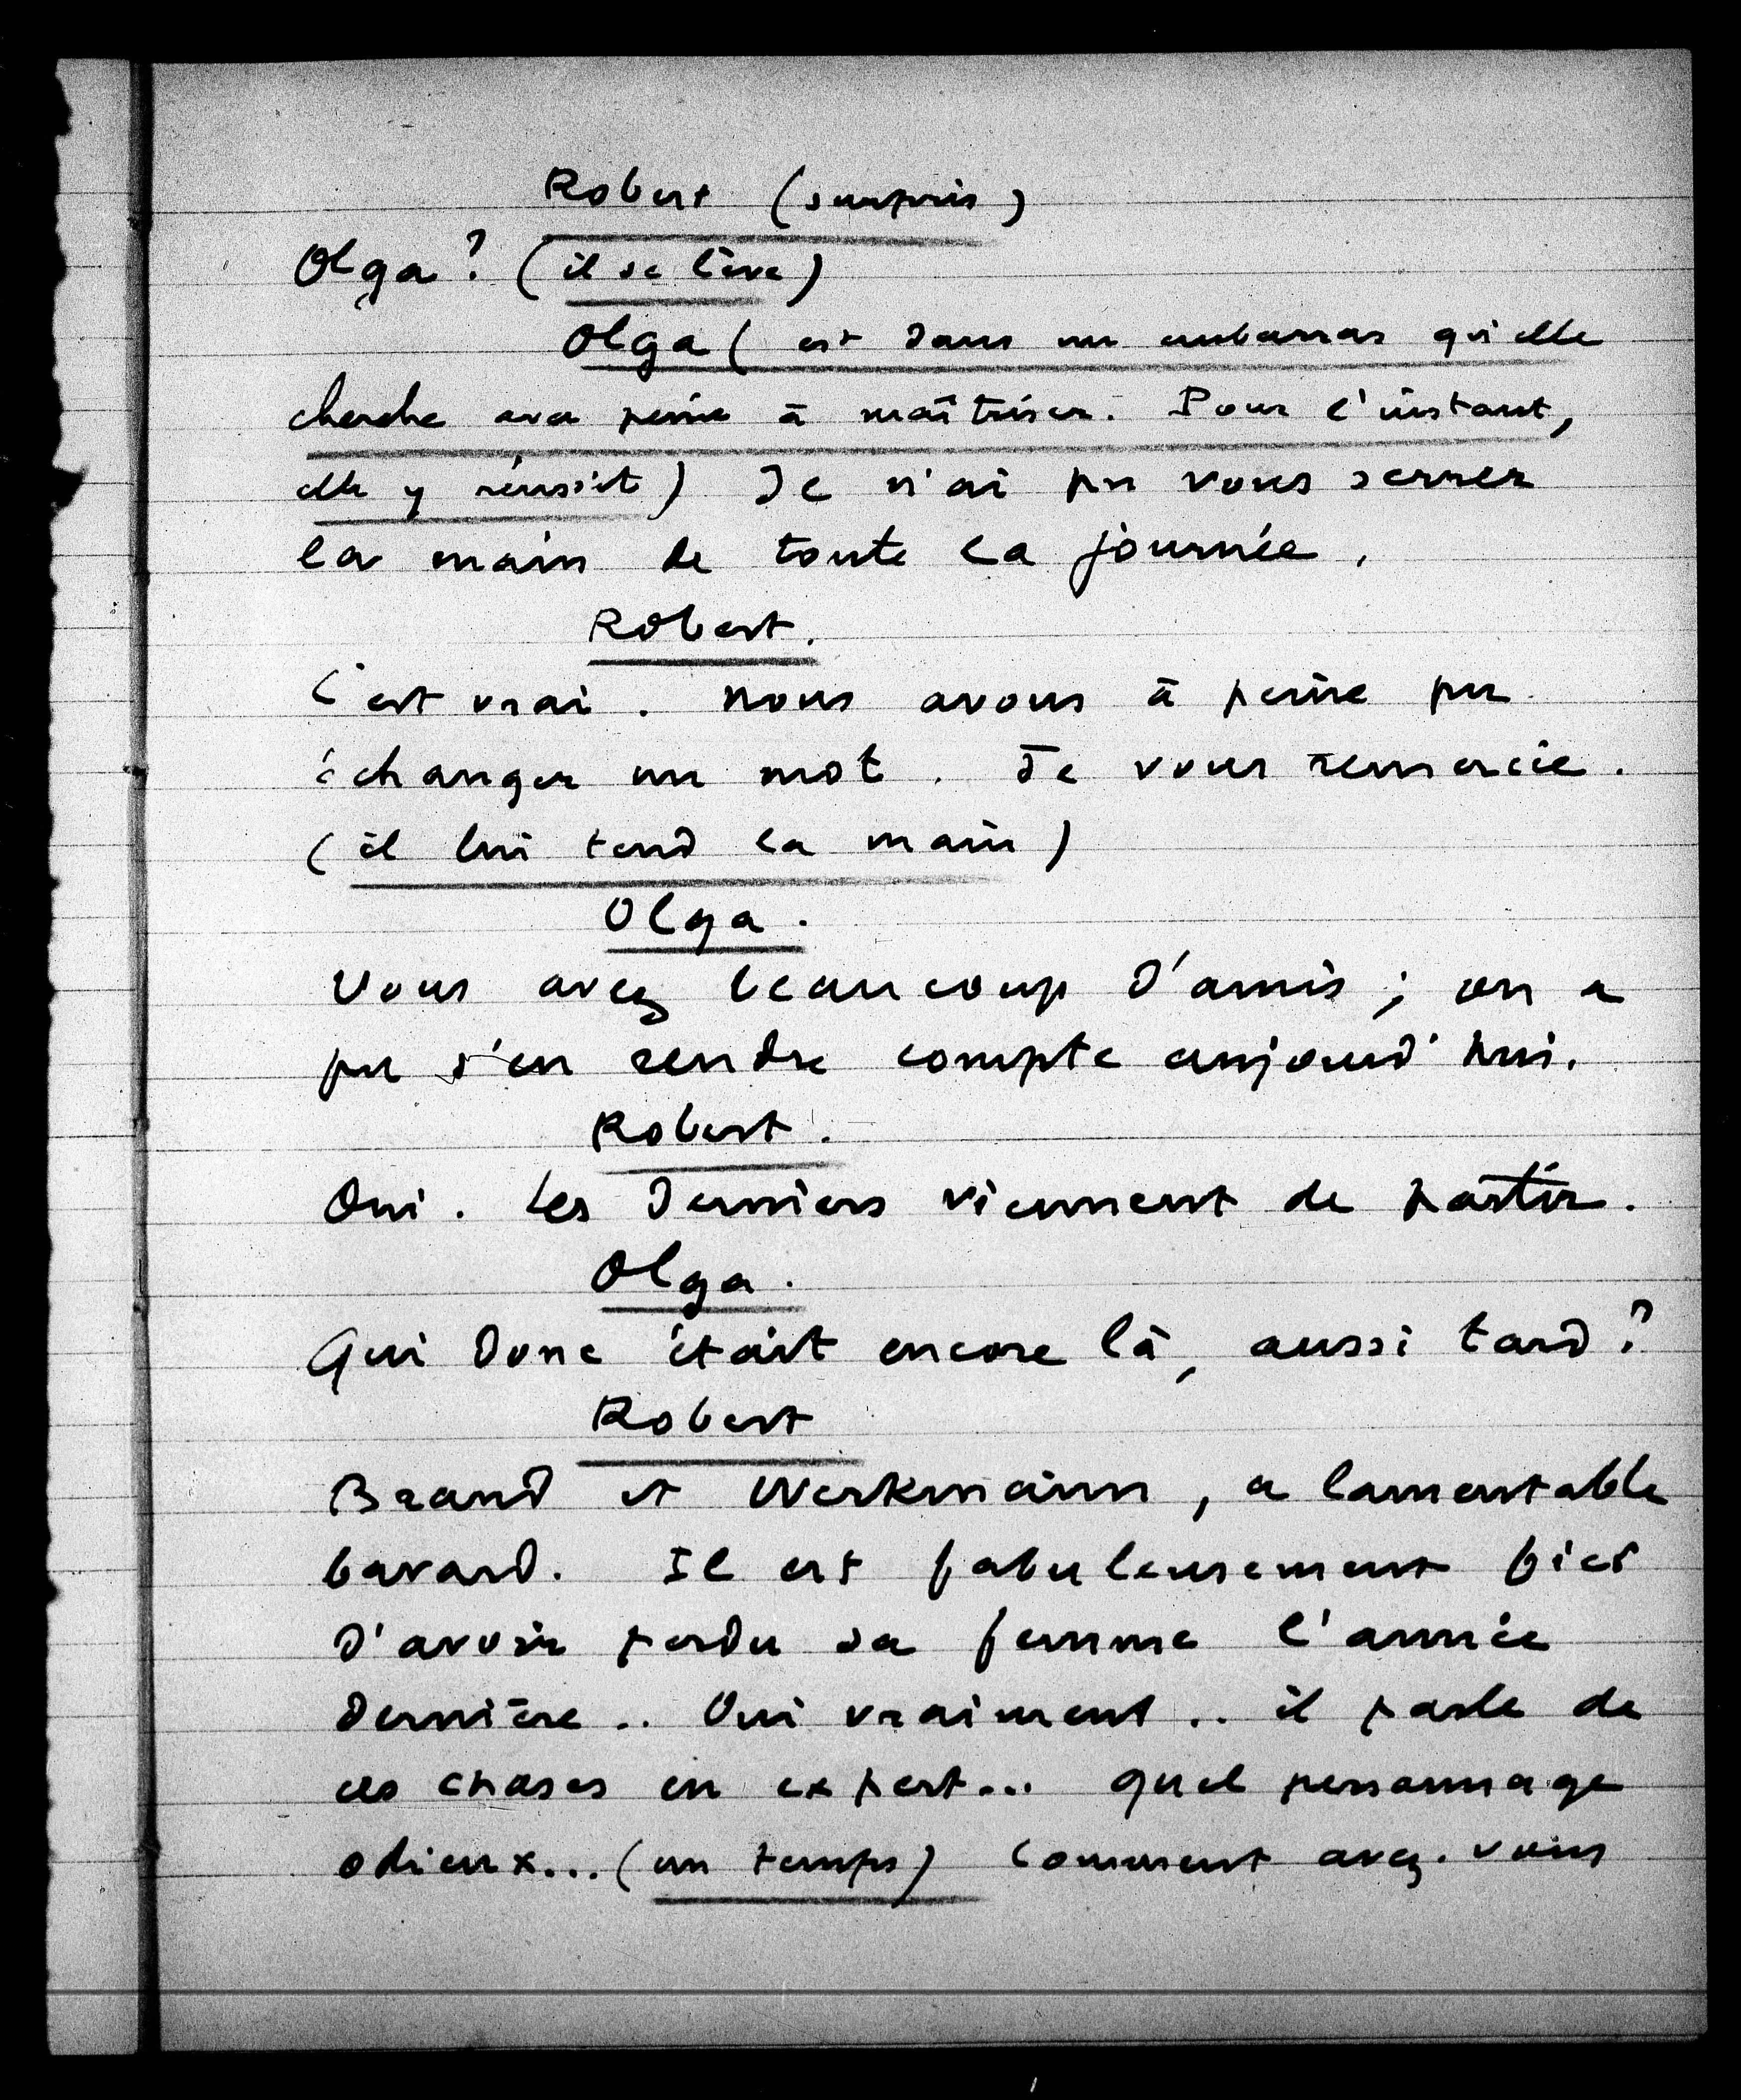 Robert (surpris)
Olga ? (il se lève)
Olga ( est dans un embarras qu'elle
cherche avec peine à maîtriser. Pour l'instant,
elle y réussit) Je n'ai pu vous serrer
la main de toute la journée.
Robert.
C'est vrai. Nous avons à peine pu
échanger un mot. Je vous remercie.
(il lui tend la main)
Olga.
Vous avez beaucoup d'amis ; on a
pu s'en rendre compte aujourd'hui.
Robert.
Oui. Les derniers viennent de partir.
Olga.
Qui donc était encore là, aussi tard ?
Robert
Brand et Werkmann, ce lamentable
bavard. Il est fabuleusement fier
d'avoir perdu sa femme l'année
dernière.. Oui vraiment.. il parle de
ces choses en expert... quel personnage
odieux...(un temps) Comment avez-vous